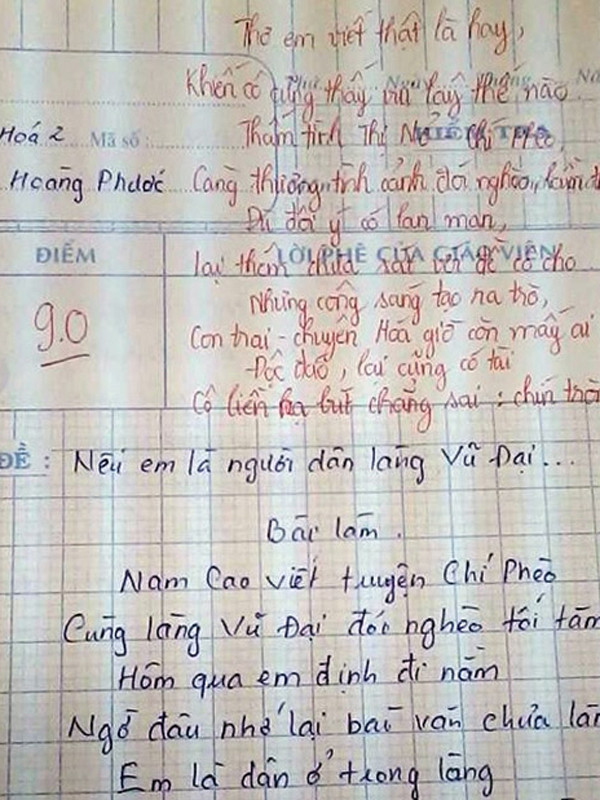 Thơ em viết thật là hay,
Khiến cô cũng thấy lay thế nào
Hoá 2 Mã số : Thấm tình Thị Nở Chí Phèo,
Hoàng Phước Càng thương tình cảnh đói nghèo, lầm
Dù đôi ý có lan man,
ĐIỂM LỜI PHÊ CỦA GIÁO VIÊN
lại thêm chưa sát với đề cô cho
9.0 Nhưng công sáng tạo ra trò,
Con trai - chuyên Hoá giờ còn mấy ai
Độc đáo, lại cũng có tài
Cô liền hạ bút chẳng sai : chín
ĐỀ : Nếu em là người dân làng Vũ Đại...
Bài làm.
Nam Cao viết truyện Chí Phèo
Cùng làng Vũ Đại đói nghèo tối tăm
Hôm qua em định đi nằm
Ngờ đâu nhớ lại bài văn chưa
Em là dân ở trong làng